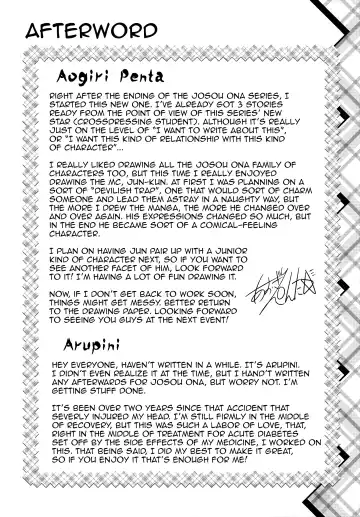 AFTERWORD
Aogiri Penta
RIGHT AFTER THE ENDING OF THE JOSOU ONA SERIES, I
STARTED THIS NEW ONE. I'VE ALREADY GOT 3 STORIES
READY FROM THE POINT OF VIEW OF THIS SERIES' NEW
STAR (CROSSDRESSING STUDENT). ALTHOUGH IT'S REALLY
JUST ON THE LEVEL OF "I WANT TO WRITE ABOUT THIS",
OR "I WANT THIS KIND OF RELATIONSHIP WITH THIS KIND
OF CHARACTER"...
I REALLY LIKED DRAWING ALL THE JOSOU ONA FAMILY OF
CHARACTERS TOO, BUT THIS TIME I REALLY ENJOYED
DRAWING THE MC, JUN-KUN. AT FIRST I WAS PLANNING ON A
SORT OF "DEVILISH TRAP", ONE THAT WOULD SORT OF CHARM
SOMEONE AND LEAD THEM ASTRAY IN A NAUGHTY WAY, BUT
THE MORE I DREW THE MANGA, THE MORE HE CHANGED OVER
AND OVER AGAIN. HIS EXPRESSIONS CHANGED SO MUCH, BUT
IN THE END HE BECAME SORT OF A COMICAL-FEELING
CHARACTER.
I PLAN ON HAVING JUN PAIR UP WITH A JUNIOR
KIND OF CHARACTER NEXT, SO IF YOU WANT TO
SEE ANOTHER FACET OF HIM, LOOK FORWARD
TO IT! I'M HAVING A LOT OF FUN DRAWING IT.
NOW, IF I DON'T GET BACK TO WORK SOON,
THINGS MIGHT GET MESSY. BETTER RETURN
TO THE DRAWING PAPER. LOOKING FORWARD
TO SEEING YOU GUYS AT THE NEXT EVENT!
Arupini
HEY EVERYONE, HAVEN'T WRITTEN IN A WHILE. IT'S ARUPINI.
I DIDN'T EVEN REALIZE IT AT THE TIME, BUT I HAND'T WRITTEN
ANY AFTERWARDS FOR JOSOU ONA, BUT WORRY NOT. I'M
GETTING STUFF DONE.
IT'S BEEN OVER TWO YEARS SINCE THAT ACCIDENT THAT
SEVERLY INJURED MY HEAD. I'M STILL FIRMLY IN THE MIDDLE
OF RECOVERY, BUT THIS WAS SUCH A LABOR OF LOVE, THAT,
RIGHT IN THE MIDDLE OF TREATMENT FOR ACUTE DIABETES
SET OFF BY THE SIDE EFFECTS OF MY MEDICINE, I WORKED ON
THIS. THAT BEING SAID, I DID MY BEST TO MAKE IT GREAT,
SO IF YOU ENJOY IT THAT'S ENOUGH FOR ME!